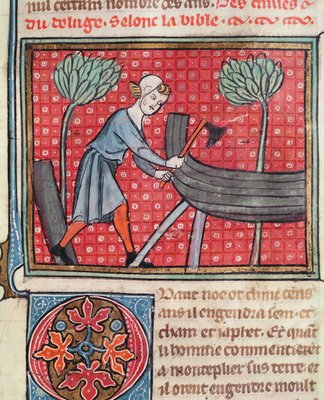 nul certain nombre des ans. Des anees &
du deluge. Selone la bible.
Quant noe ot chinc cens
ans il engendra sem et
cham et iaphet. Et quāt
li homme commencierēt
a monteplier sus terre et
il orent engendre moult